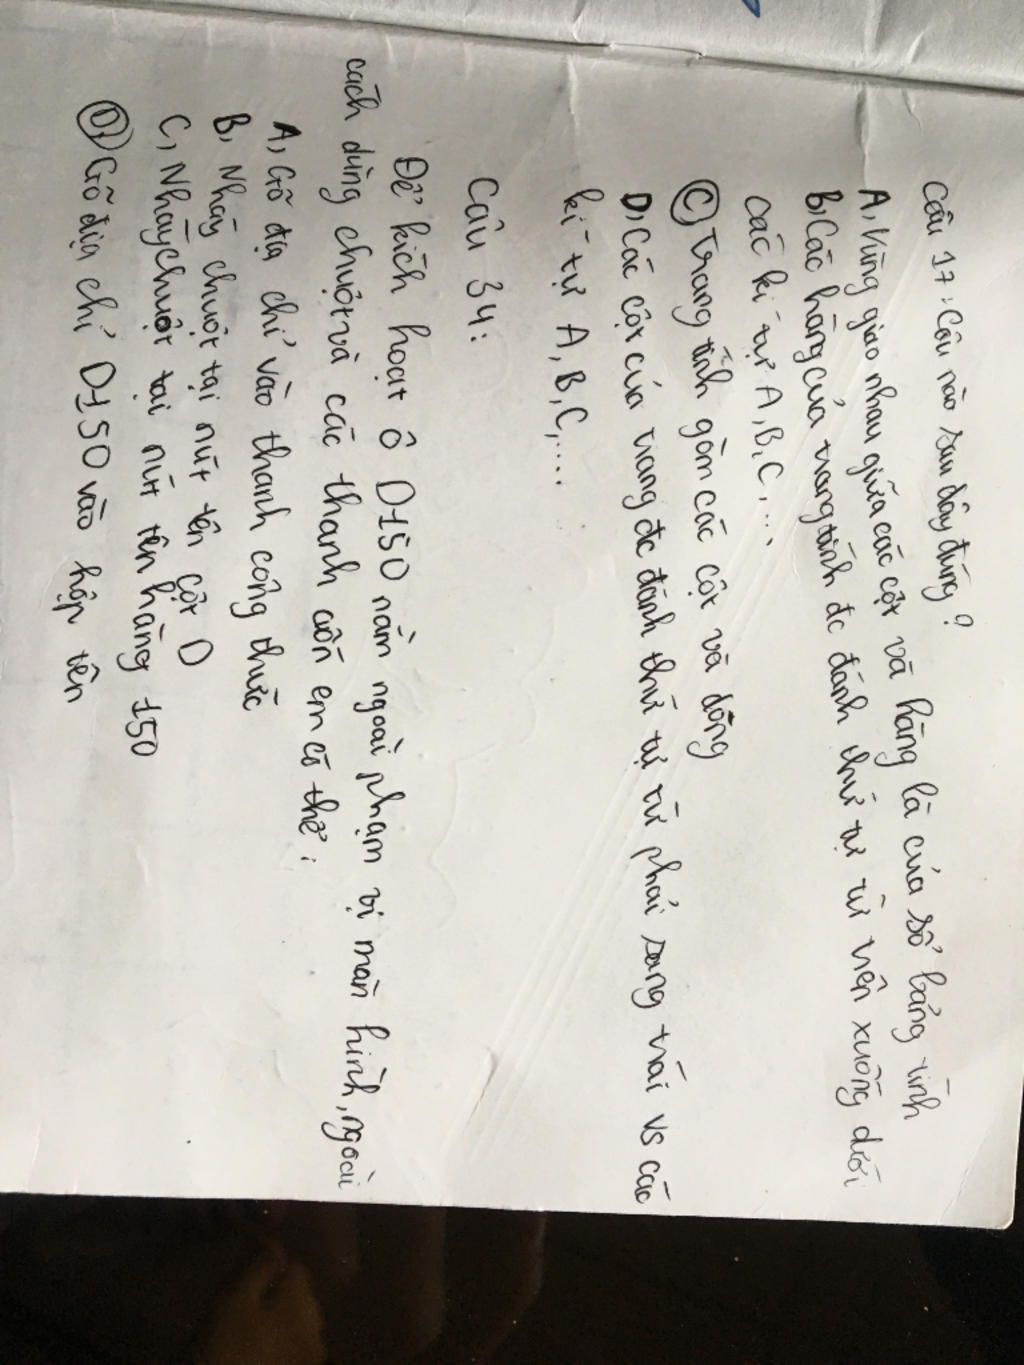 Câu 17: Câu nào sau đây đúng?
A, Vùng giao nhau giữa các cột và hàng là của sổ bảng tính
B, Các hàng của trang tính đc đánh thứ tự từ trên xuống dưới
các kí tự A, B, C, ...
C, Trang tính gồm các cột và dòng
D, Các cột của trang đc đánh thứ tự từ phải sang trái vs các
kí tự A, B, C, ....
Câu 34:
Để kích hoạt ô D150 nằm ngoài phạm vị màn hình, ngoài
cách dùng chuột và các thanh cốn em có thể:
A, Gõ địa chỉ vào thanh công thức
B, Nháy chuột tại nút tên cột D
C, Nháy chuột tại nút tên hàng 150
D, Gõ địa chỉ D150 vào hộp tên